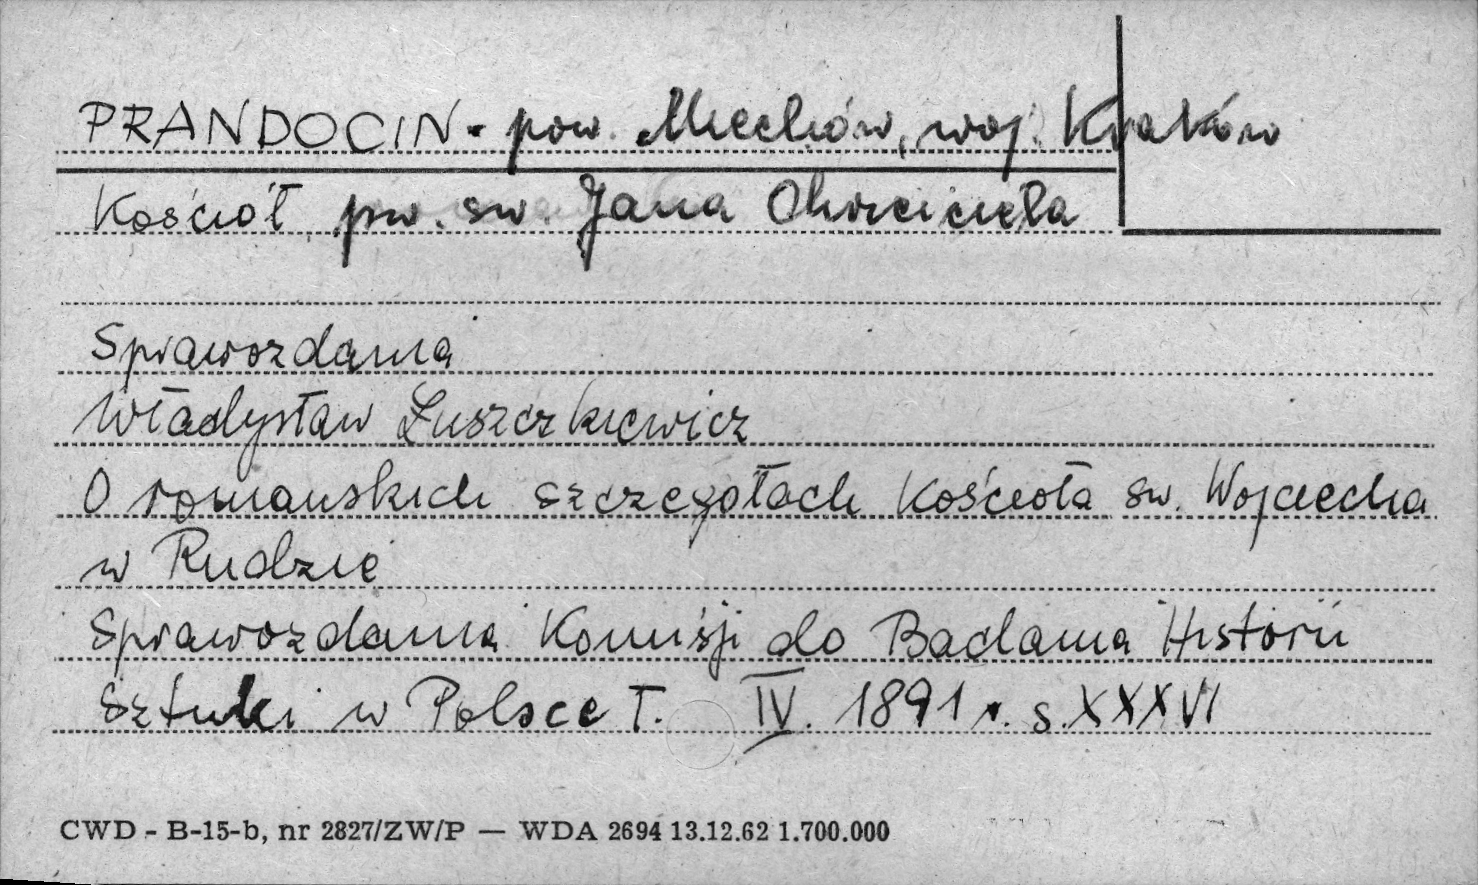 PRANDOCIN - pow. Miechów, woj. Kraków
Kościół pw. św. Jana Chrzciciela
Sprawozdania
Władysław Łuszczkiewicz
O romańskich szczegółach Kościoła św. Wojciecha
w Rudzie
Sprawozdania Komisji do Badania Historii
Sztuki w Polsce T. IV. 1891 r. s. XXXVI
CWD - B-15-b, nr 2827/ZW/P — WDA 2694 13.12.62 1.700.000